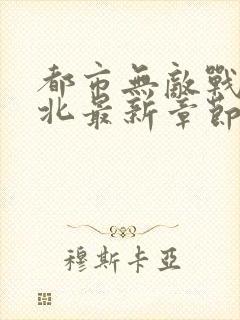 都市無敵戰
北最新章節
穆斯卡亞